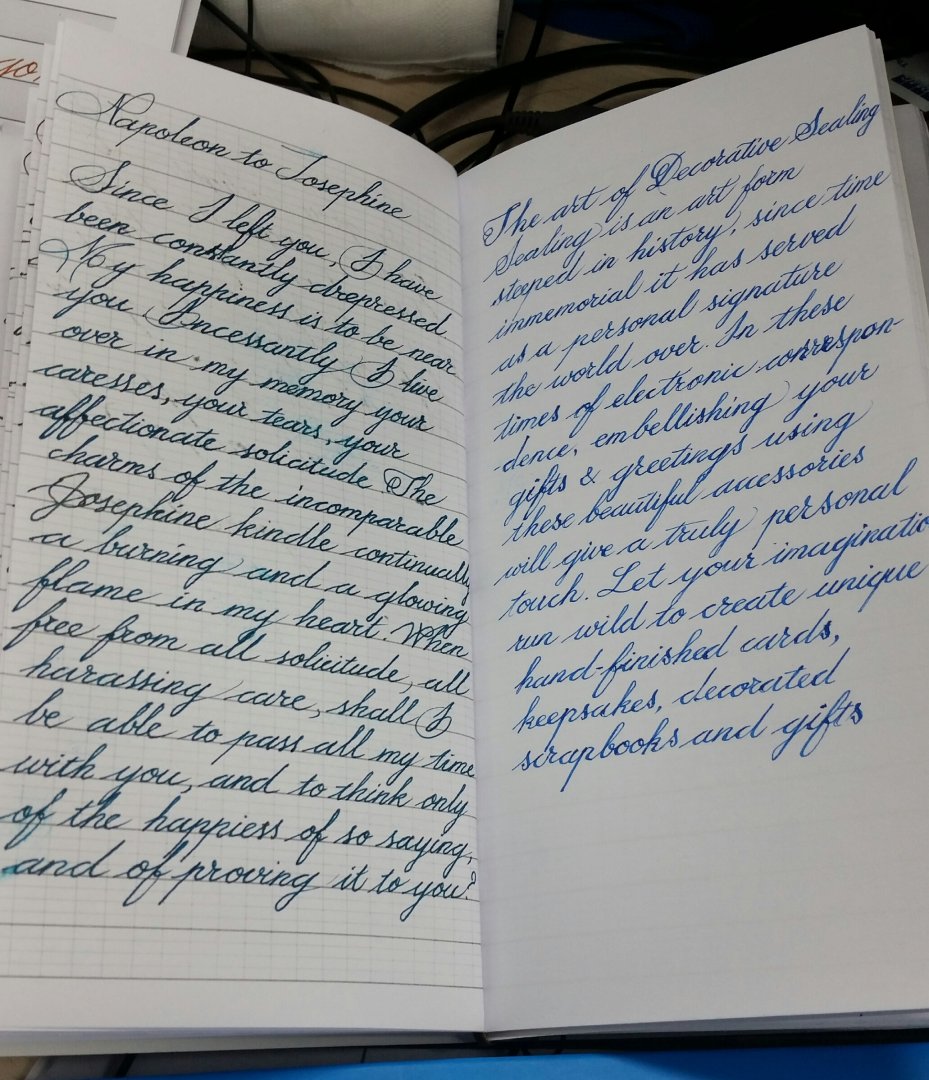 Napoleon to Josephine
Since I left you, I have
been constantly drepressed.
My happiness is to be near
you Incessantly I live
over in my memory your
caresses, your tears, your
affectionate solicitude. The
charms of the incomparable
Josephine kindle continually
a burning and a glowing
flame in my heart. When
free from all solicitude, all
harassing care, shall I
be able to pass all my time
with you, and to think only
of the happiess of so saying,
and of proving it to you?
The art of Decorative Sealing
Sealing is an art form
steeped in history, since time
immemorial it has served
as a personal signature
the world over. In these
times of electronic correspon-
dence, embellishing your
gifts & greetings using
these beautiful accessories
will give a truly personal
touch. Let your imaginatio
run wild to create unique
hand-finished cards,
keepsakes, decorated
scrapbooks and gifts